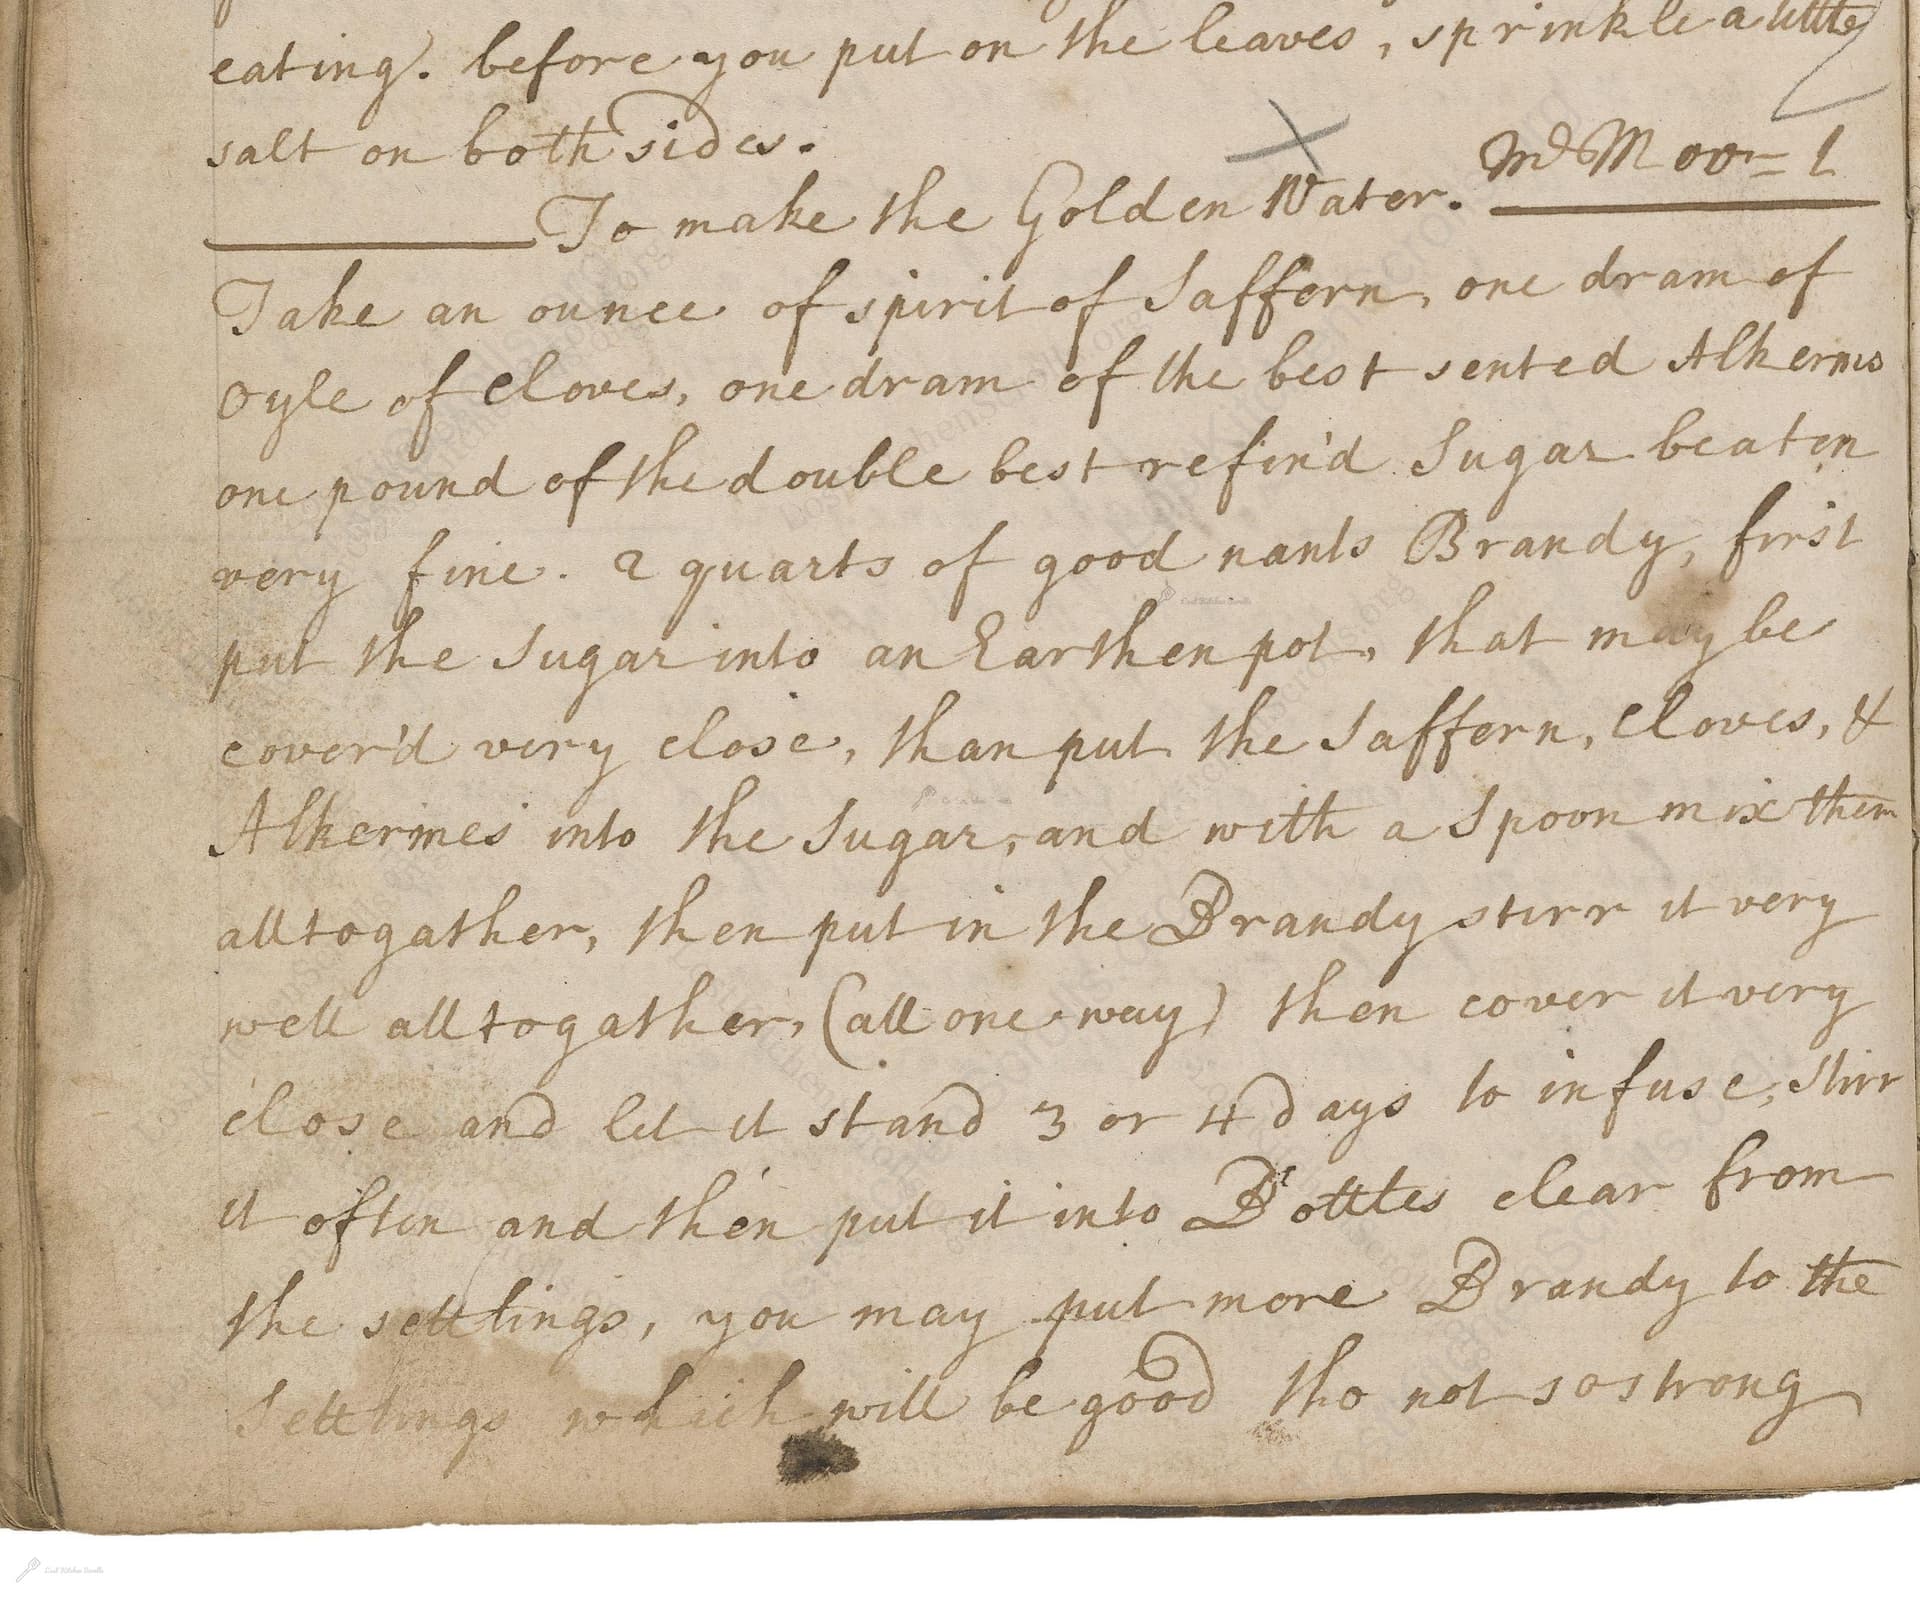 eating. before you put on the leaves, sprinkle a little
salt on both sides.
To make the Golden Water.
Take an ounce of spirit of Saffern, one dram of
Oyle of Cloves, one dram of the best sented Alkermes
one pound of the double best refin'd Sugar beaten
very fine. 2 quarts of good nants Brandy, first
put the Sugar into an Earthen pot, that may be
cover'd very close, than put the Saffern, Cloves, &
Alkermes into the Sugar, and with a Spoon mix them
all togather, then put in the Brandy stirr it very
well all togather, (all one way) then cover it very
close and let it stand 3 or 4 days to infuse, Stirr
it often and then put it into Bottles clear from
the settlings, you may put more Brandy to the
Settlings which will be good tho not so strong